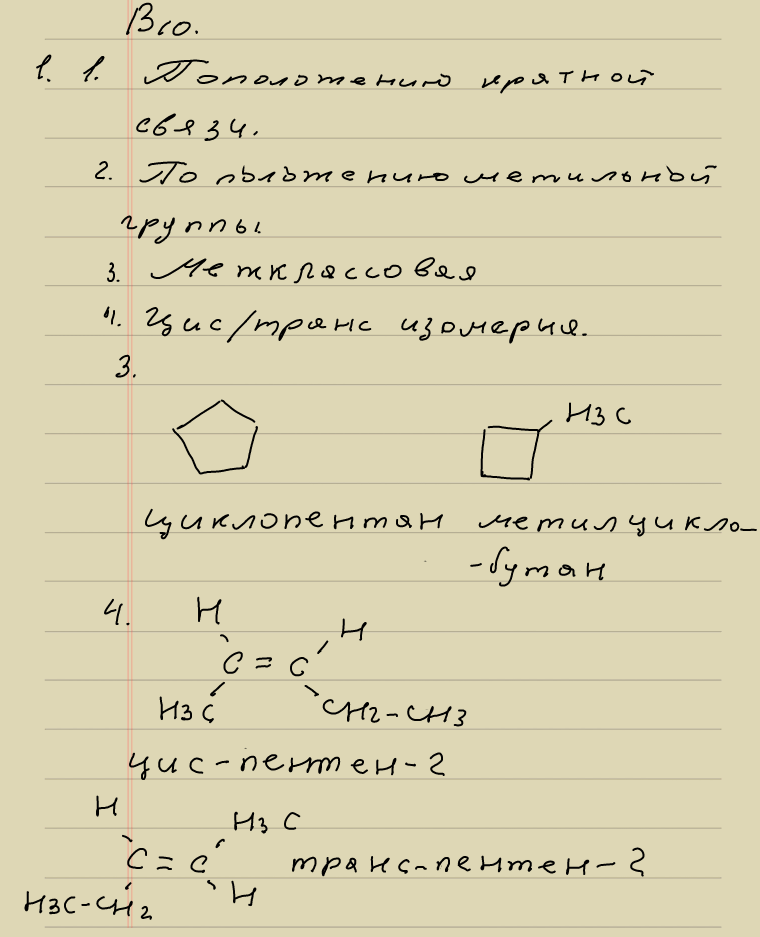 В10.
1. 1. Поположению крятной
связи.
2. По пъльтению метильной
группы
3. Метклассовая
4. Цис/транс изомерия.
3.
H3C
циклопентан метилцикло-
-бутан
4. H H
C = C
H3C CH2-CH3
цис-пентен-2
H H3C
C = C транс-пентен-2
H3C-CH2 H